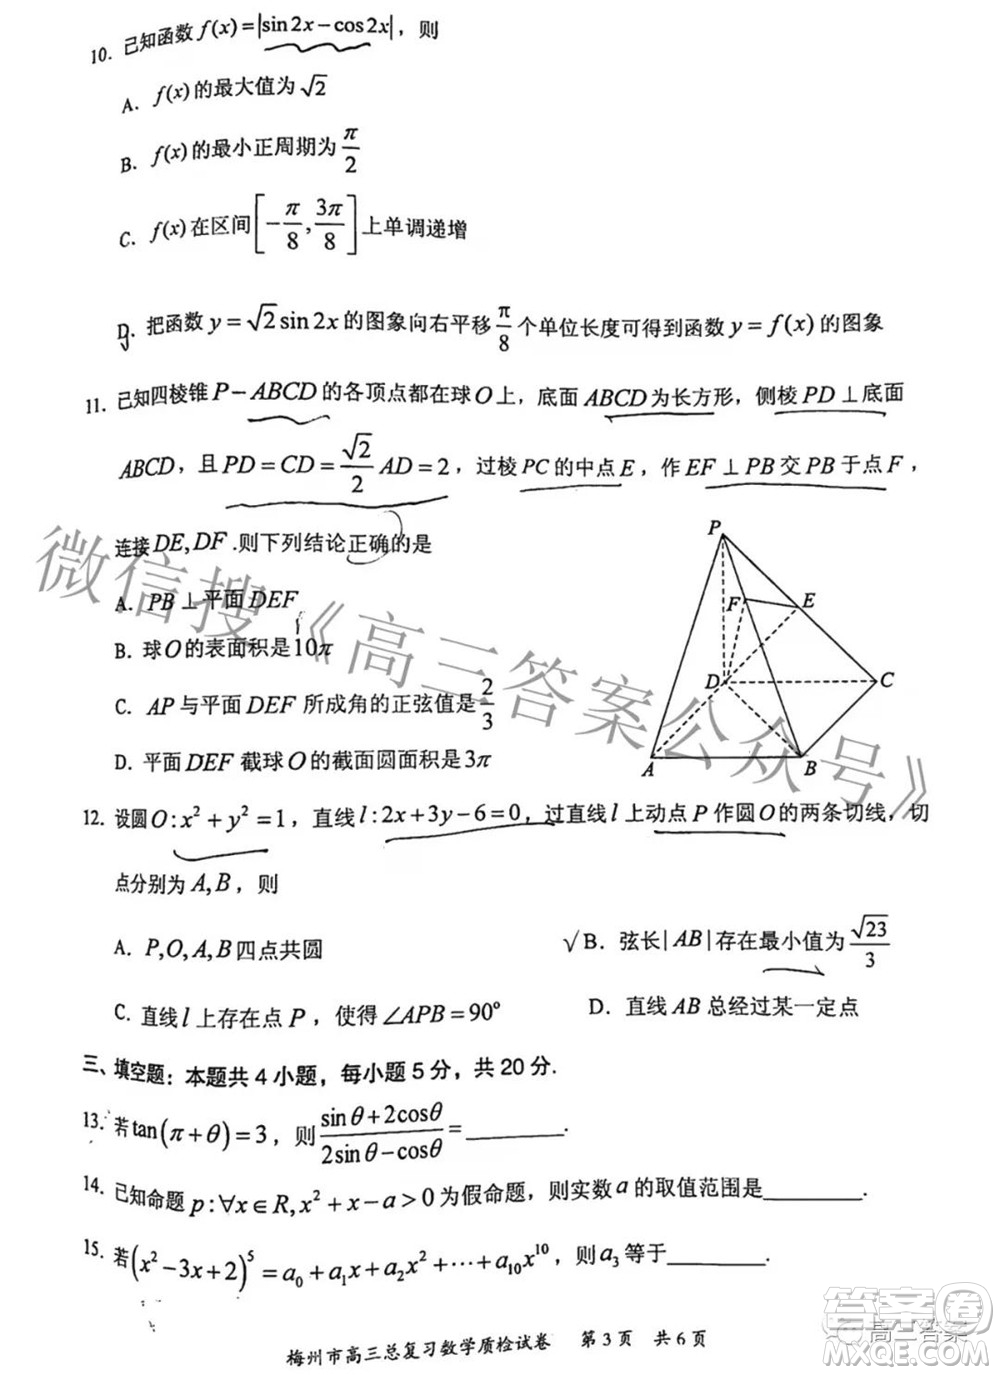 10. 已知函数 f(x)=|sin2x-cos2x|，则
A. f(x)的最大值为√2
B. f(x)的最小正周期为π/2
C. f(x)在区间[-π/8, 3π/8]上单调递增
D. 把函数 y=√2sin2x 的图象向右平移π/8个单位长度可得到函数 y=f(x) 的图象
11. 已知四棱锥 P-ABCD 的各顶点都在球 O 上，底面 ABCD 为长方形，侧棱 PD⊥底面
ABCD，且 PD=CD=√2/2 AD=2，过棱 PC 的中点 E，作 EF⊥PB 交 PB 于点 F，
连接 DE,DF .则下列结论正确的是
A. PB⊥平面 DEF
B. 球 O 的表面积是10π
C. AP 与平面 DEF 所成角的正弦值是2/3
D. 平面 DEF 截球 O 的截面圆面积是3π
P
F
E
D
C
A
B
12. 设圆O:x²+y²=1，直线 l:2x+3y-6=0，过直线 l 上动点 P 作圆 O 的两条切线，切
点分别为 A,B，则
A. P,O,A,B 四点共圆
√B. 弦长|AB|存在最小值为√23/3
C. 直线 l 上存在点 P，使得∠APB=90°
D. 直线 AB 总经过某一定点
三、填空题：本题共 4 小题，每小题 5 分，共 20 分.
13. 若 tan(π+θ)=3，则 (sinθ+2cosθ)/(2sinθ-cosθ)=________.
14. 已知命题 p:∀x∈R,x²+x-a>0 为假命题，则实数 a 的取值范围是________.
15. 若(x²-3x+2)⁵=a₀+a₁x+a₂x²+⋯+a₁₀x¹⁰，则 a₃ 等于________.
梅州市高三总复习数学质检试卷 第 3 页 共 6 页
微信搜《高三答案公众号》
答案圈
高三答案
MXQE.COM